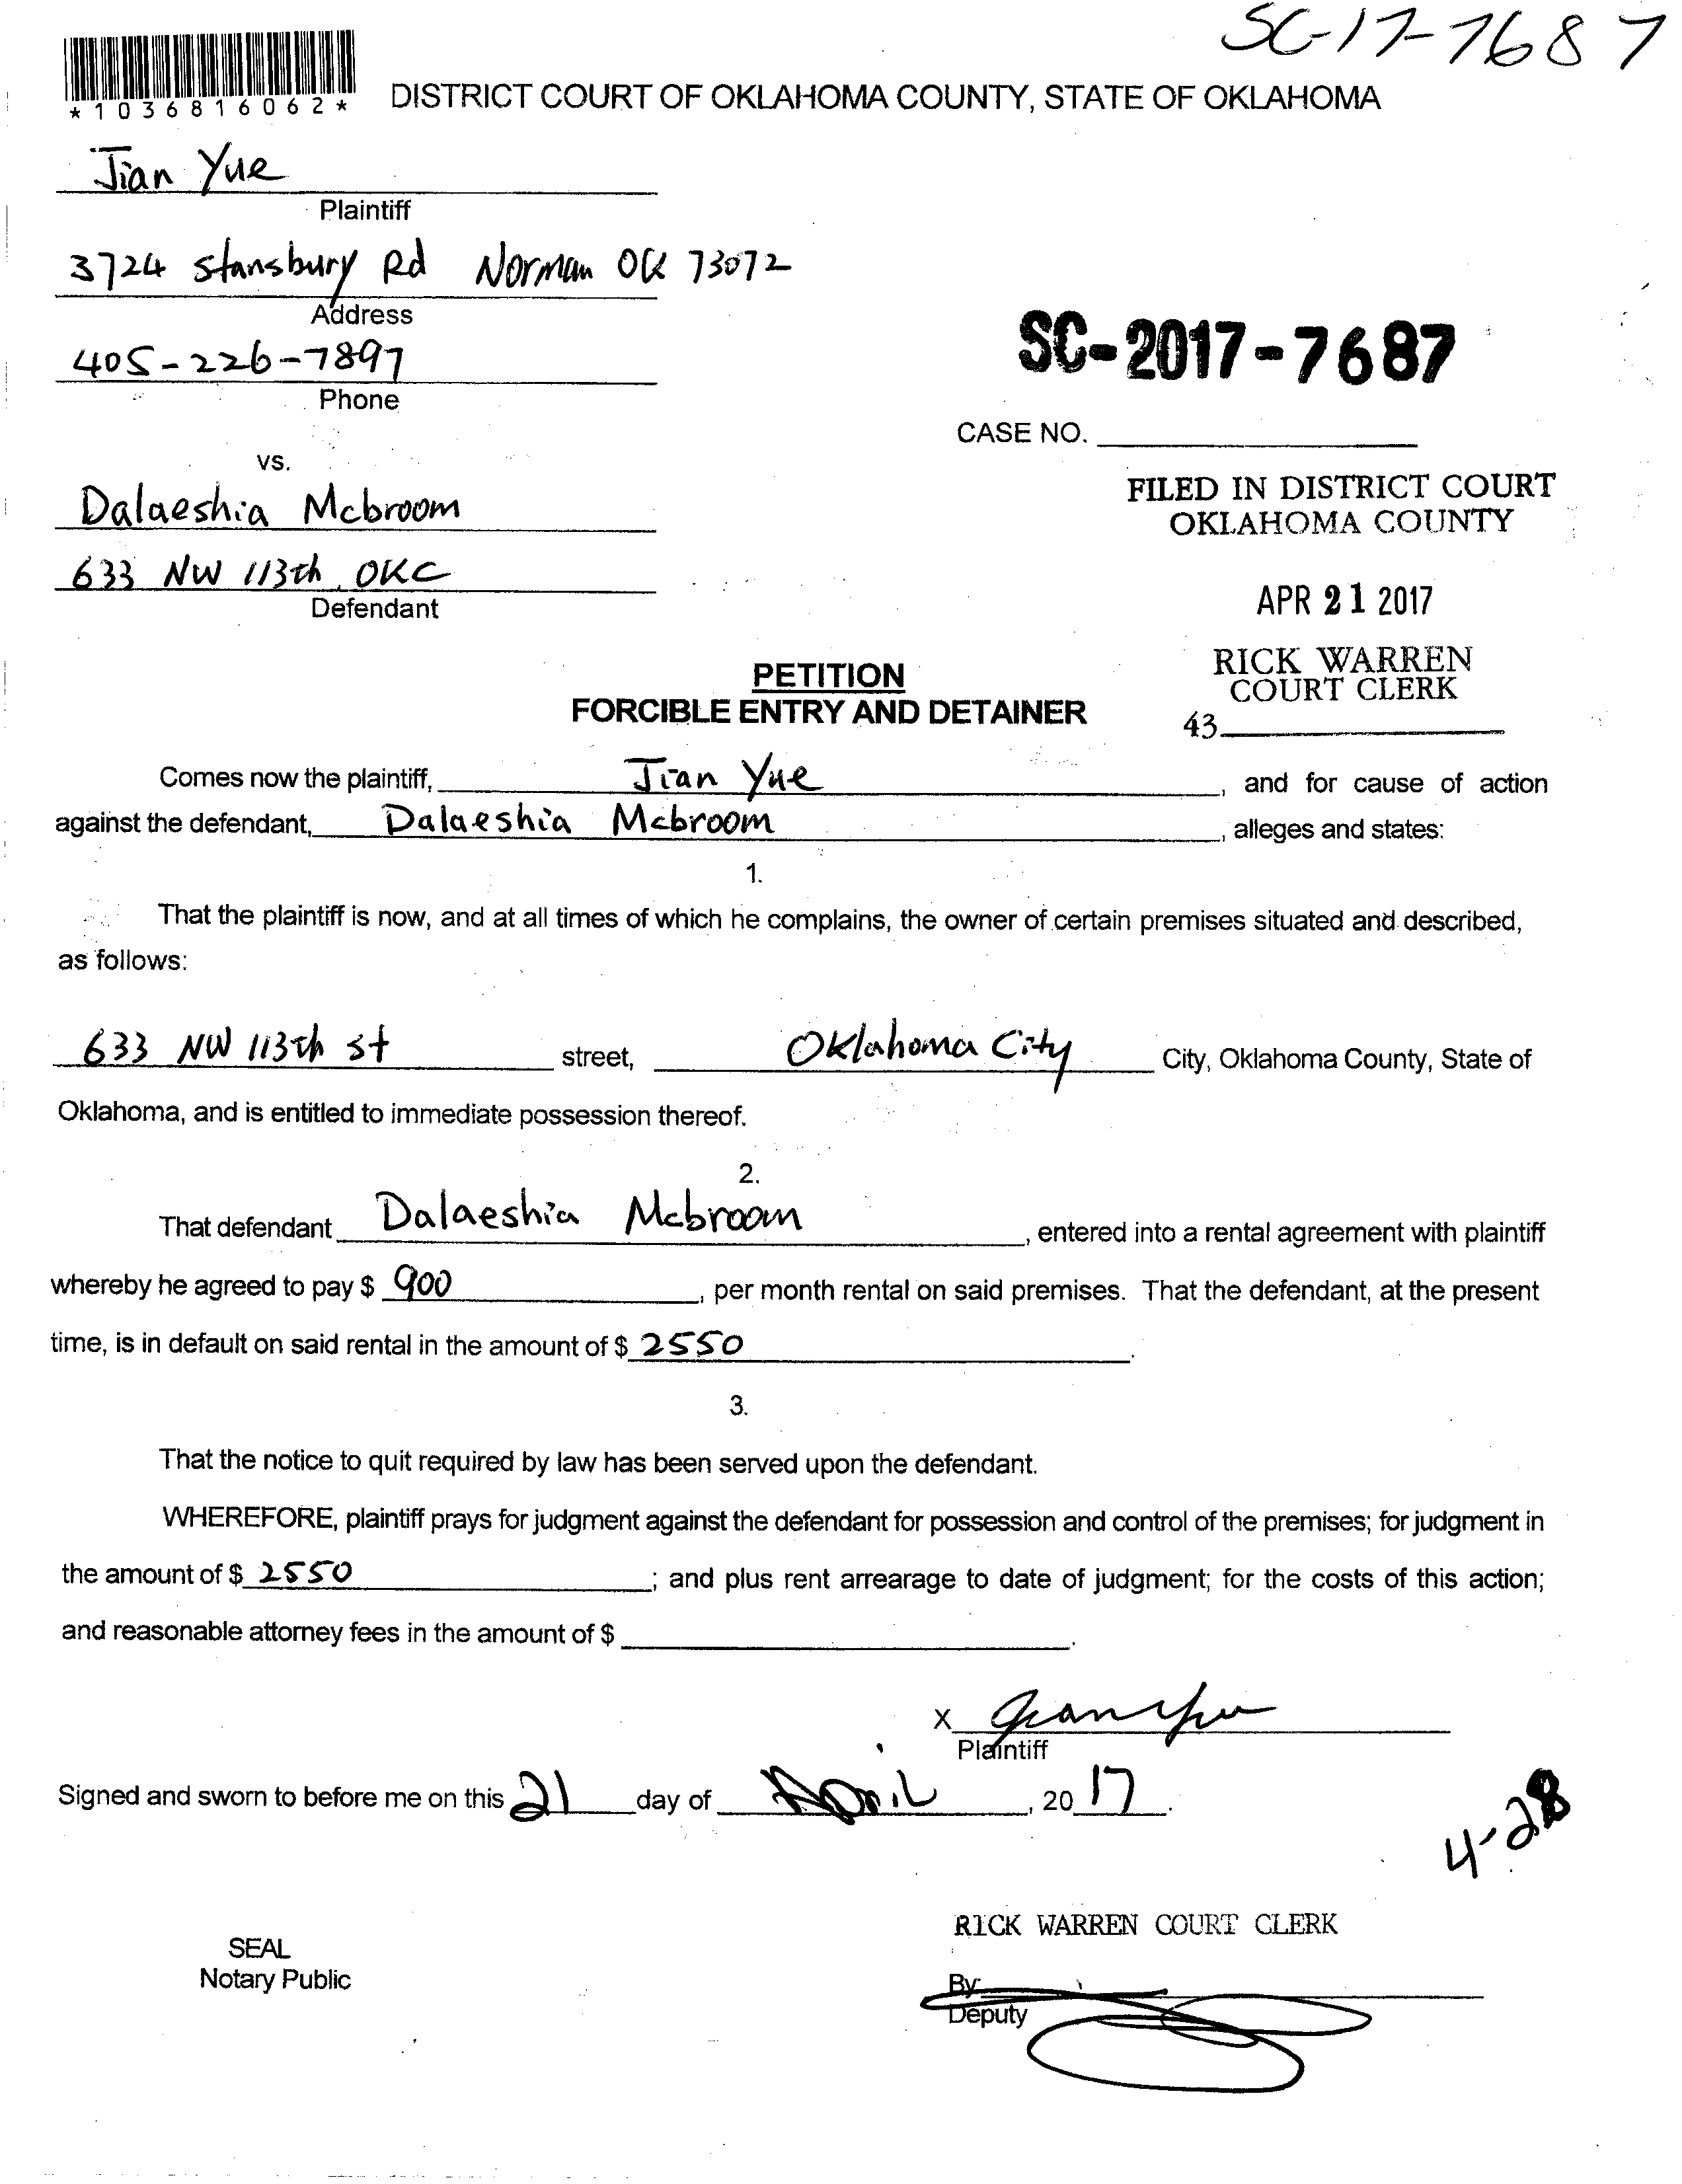 SC-17-7687
*1036816062*
DISTRICT COURT OF OKLAHOMA COUNTY, STATE OF OKLAHOMA
Jian Yue
Plaintiff
3724 Stansbury Rd Norman OK 73072
Address
405-226-7897
Phone
SC-2017-7687
CASE NO.
vs.
Dalaeshia Mcbroom
633 NW 113th, OKC
Defendant
FILED IN DISTRICT COURT
OKLAHOMA COUNTY
APR 21 2017
RICK WARREN
COURT CLERK
43
PETITION
FORCIBLE ENTRY AND DETAINER
Comes now the plaintiff, Jian Yue, and for cause of action
against the defendant, Dalaeshia Mcbroom, alleges and states:
1.
That the plaintiff is now, and at all times of which he complains, the owner of certain premises situated and described,
as follows:
633 NW 113th st street, Oklahoma City City, Oklahoma County, State of
Oklahoma, and is entitled to immediate possession thereof.
2.
That defendant Dalaeshia Mcbroom, entered into a rental agreement with plaintiff
whereby he agreed to pay $ 900, per month rental on said premises. That the defendant, at the present
time, is in default on said rental in the amount of $ 2550.
3.
That the notice to quit required by law has been served upon the defendant.
WHEREFORE, plaintiff prays for judgment against the defendant for possession and control of the premises; for judgment in
the amount of $ 2550; and plus rent arrearage to date of judgment; for the costs of this action;
and reasonable attorney fees in the amount of $ .
X Jian Yue
Plaintiff
Signed and sworn to before me on this 21 day of April, 2017.
4-28
RICK WARREN COURT CLERK
SEAL
Notary Public
By
Deputy